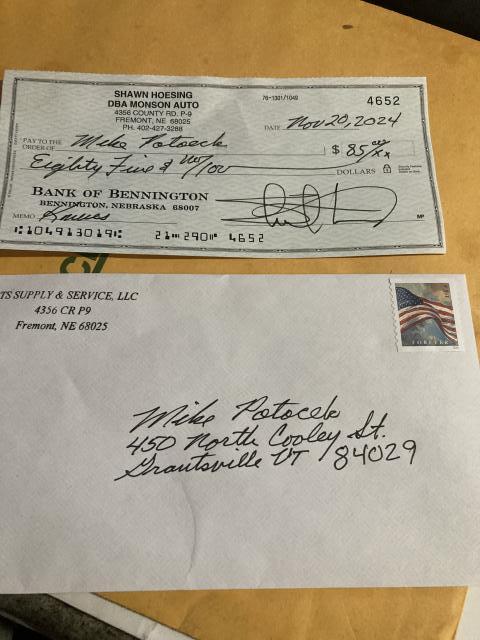 SHAWN HOESING
DBA MONSON AUTO
4356 COUNTY RD. P-9
FREMONT, NE 68025
PH. 402-427-3288
76-1301/1049
4652
DATE Nov 20, 2024
PAY TO THE ORDER OF Mike Potocek
$ 85 no/xx
Eighty Five & no/100 DOLLARS
BANK OF BENNINGTON
BENNINGTON, NEBRASKA 68007
MEMO Knives
MP
⑆104913019⑆ 21⑉290⑈ 4652
TS SUPPLY & SERVICE, LLC
4356 CR P9
Fremont, NE 68025
FOREVER
Mike Potocek
450 North Cooley St.
Grantsville UT 84029